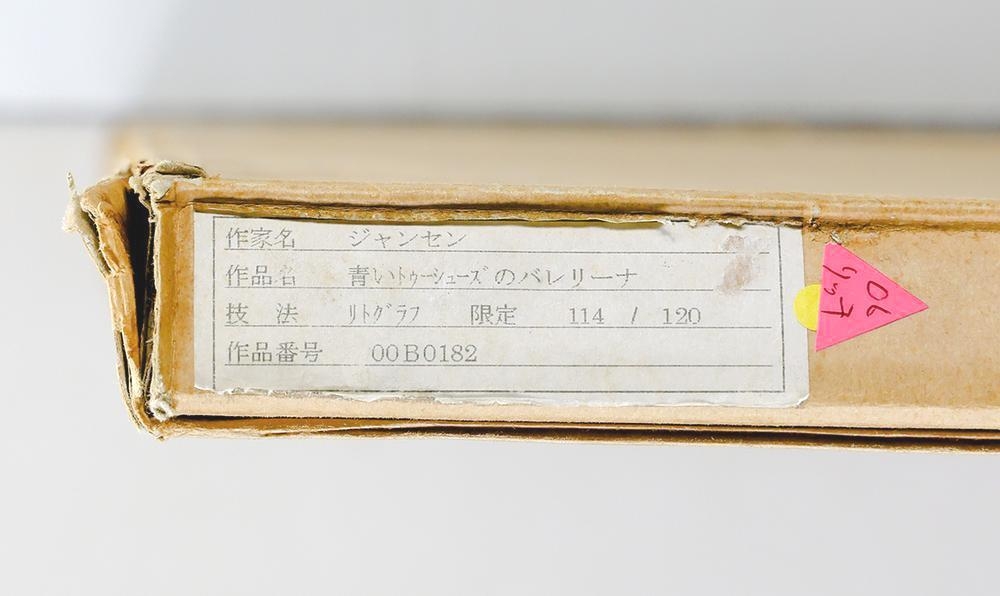 作家名 ジャンセン
作品名 青いトゥーシューズのバレリーナ
技 法 リトグラフ 限定 114 / 120
作品番号 00B0182
06